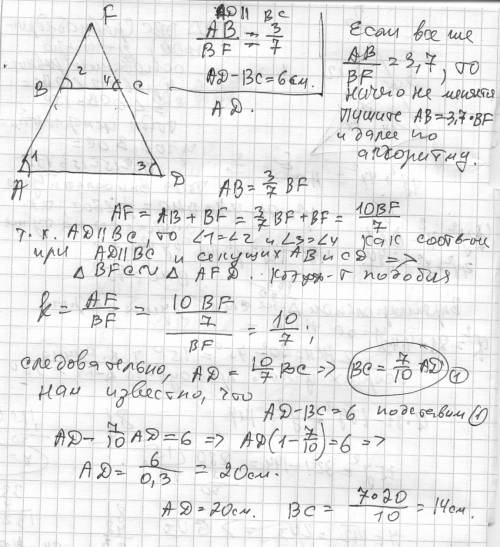 F
B 2 4 C
1 3
A D
AD || BC
AB/BF = 3/7
AD-BC=6см.
AD.
Если все же
AB/BF = 3,7, то
ничего не меняется
пишите AB=3,7·BF
и далее по
алгоритму.
AB = 3/7 BF
AF = AB + BF = 3/7 BF + BF = 10BF/7
т.к. AD || BC, то ∠1=∠2 и ∠3=∠4 как соотв-ые
при AD||BC и секущих AB и CD =>
△ BFC ∾ △ AFD. Коэф-т подобия
k = AF/BF = (10 BF/7)/BF = 10/7;
следовательно, AD = 10/7 BC => BC = 7/10 AD (1)
Нам известно, что
AD-BC=6 подставим (1)
AD - 7/10 AD = 6 => AD(1 - 7/10) = 6 =>
AD = 6/0,3 = 20см.
AD = 20см. BC = 7·20/10 = 14см.